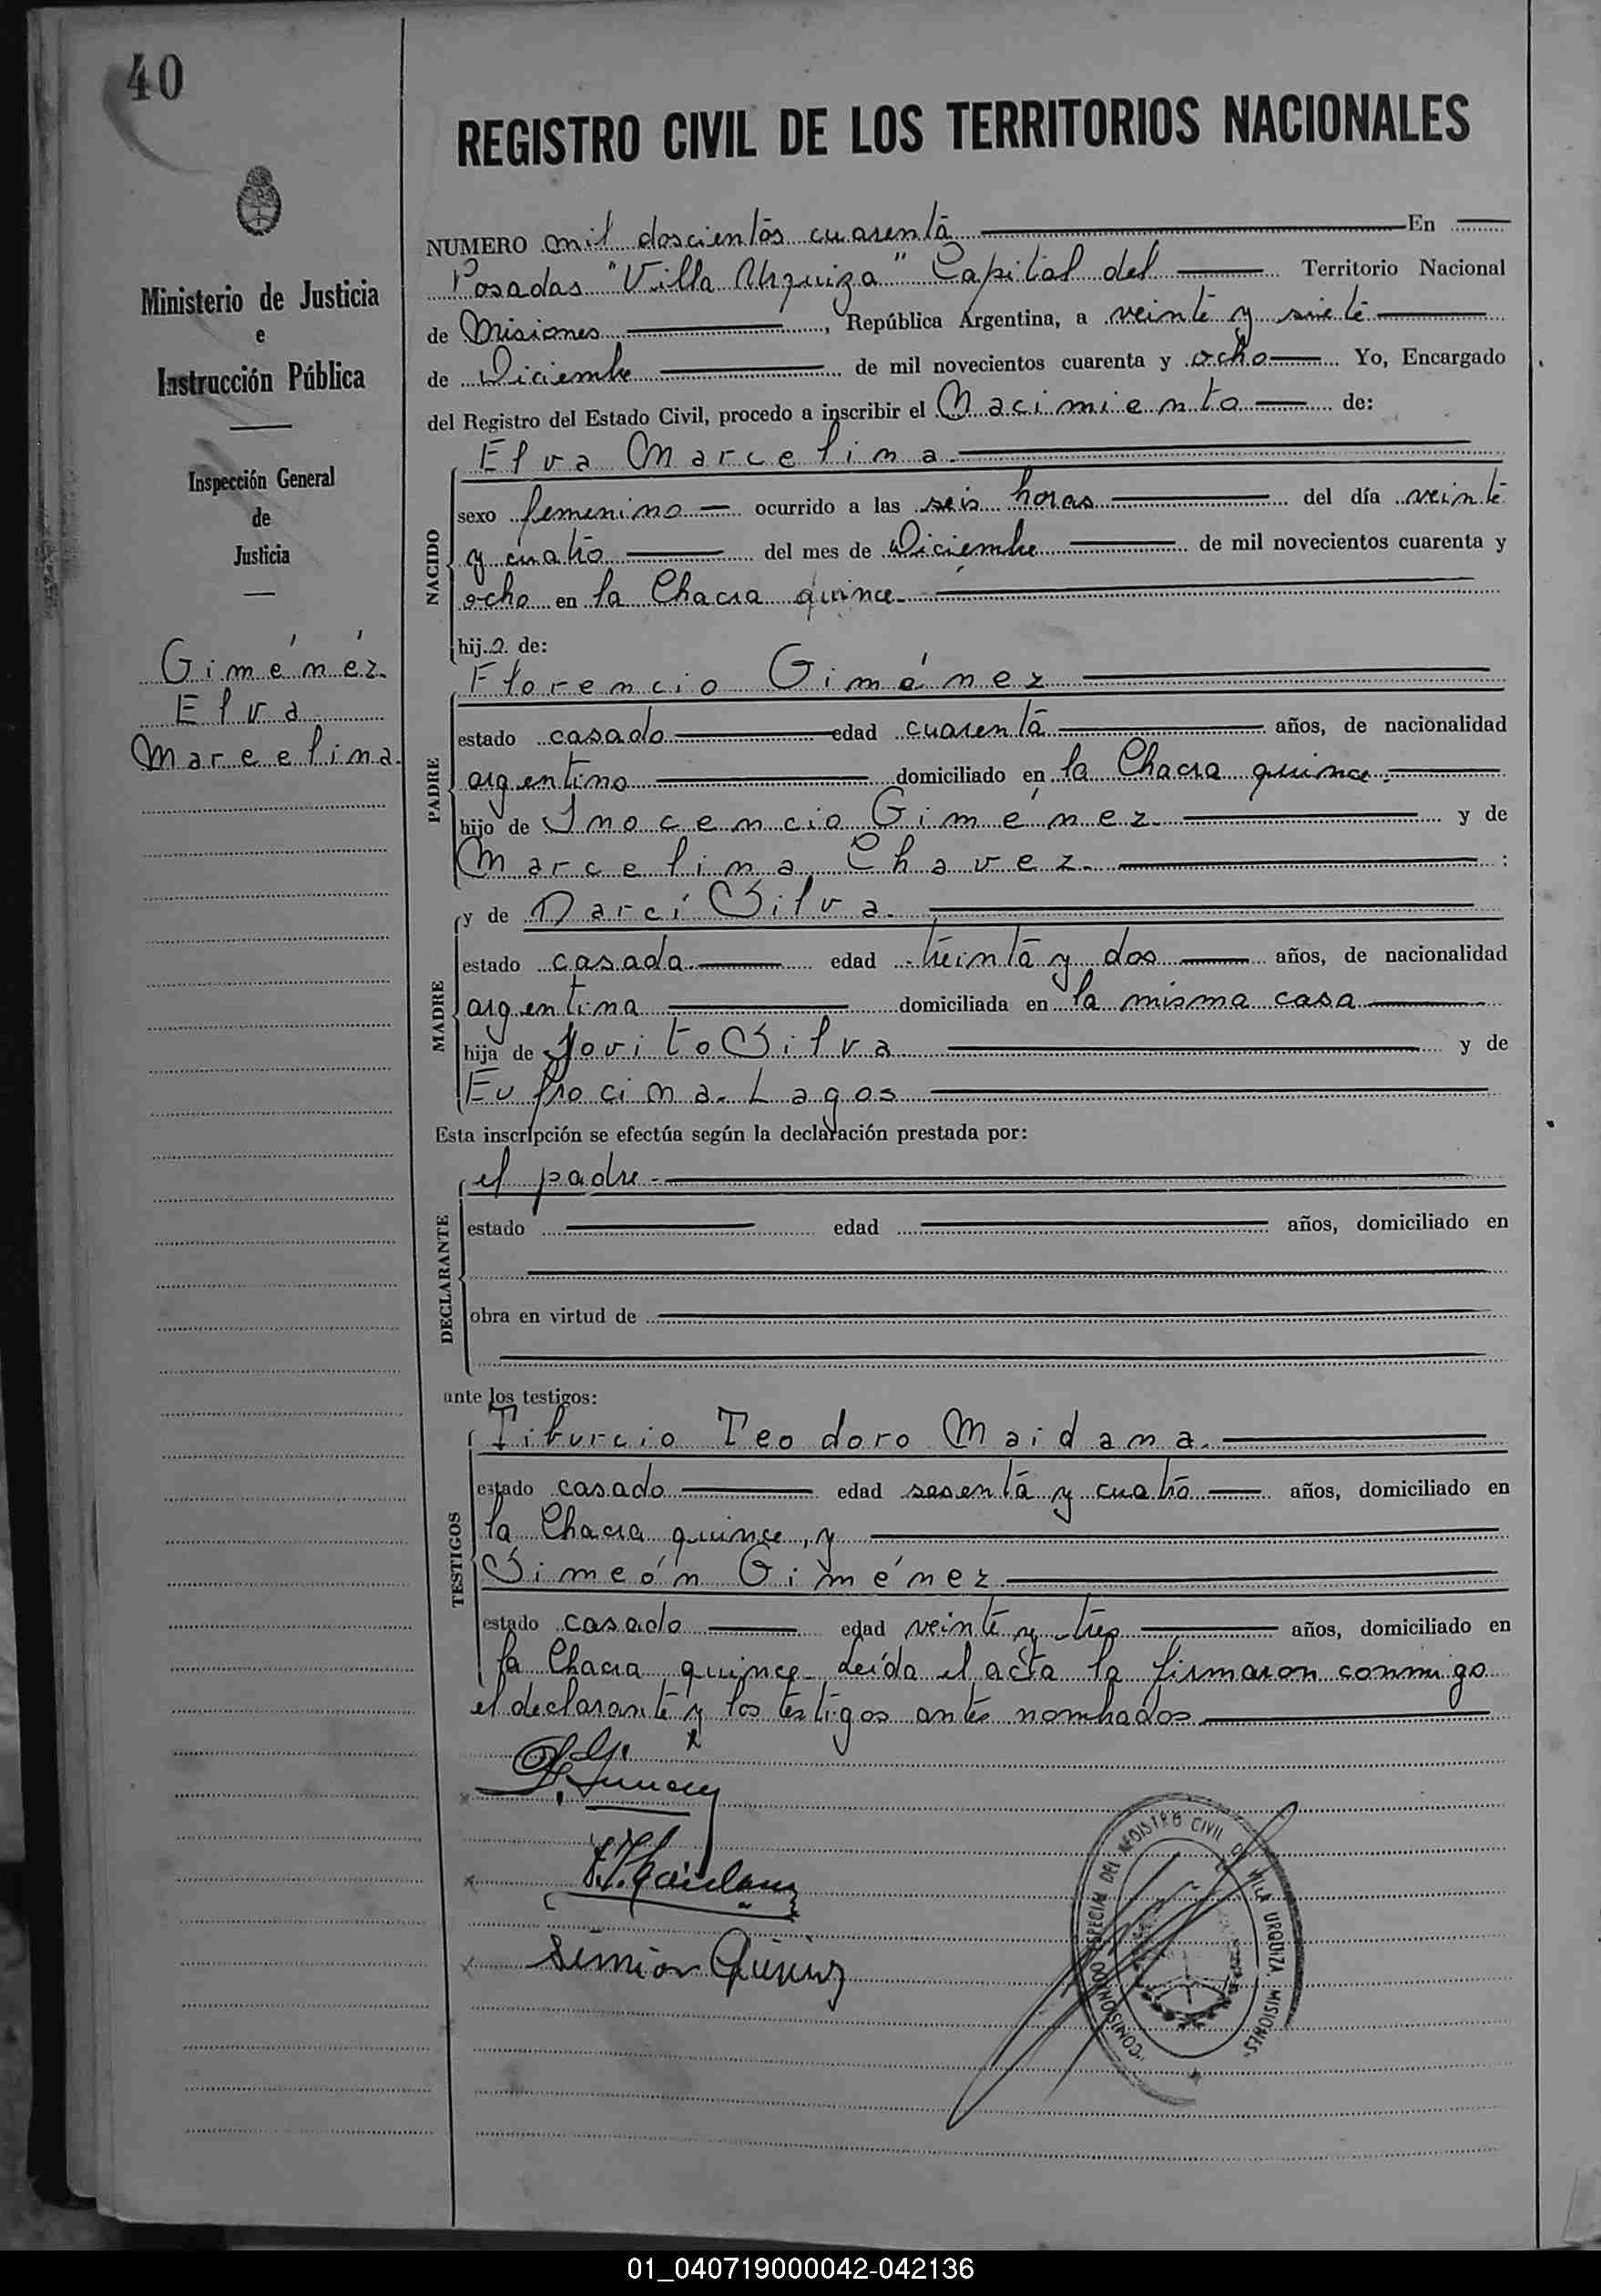 40
REGISTRO CIVIL DE LOS TERRITORIOS NACIONALES
Ministerio de Justicia
e
Instrucción Pública
Inspección General
de
Justicia
Giménéz.
Elva
Marcelina.
NUMERO mil doscientos cuarenta En
Posadas "Villa Urquiza" Capital del Territorio Nacional
de Misiones, República Argentina, a veinte y siete
de Diciembre de mil novecientos cuarenta y ocho Yo, Encargado
del Registro del Estado Civil, procedo a inscribir el Nacimiento de:
NACIDO
Elva Marcelina.
sexo femenino ocurrido a las seis horas del día veinte
y cuatro del mes de Diciembre de mil novecientos cuarenta y
ocho en la Chacra quince.
hija de:
PADRE
Florencio Giménez
estado casado edad cuarenta años, de nacionalidad
argentino domiciliado en la Chacra quince.
hijo de Inocencio Giménez. y de
Marcelina Chavez. :
MADRE
y de Darcí Silva.
estado casada edad treinta y dos años, de nacionalidad
argentina domiciliada en la misma casa
hija de Jovito Silva y de
Eufrocina Lagos
Esta inscripción se efectúa según la declaración prestada por:
DECLARANTE
el padre
estado edad años, domiciliado en
obra en virtud de
ante los testigos:
TESTIGOS
Tiburcio Teodoro Maidana.
estado casado edad sesenta y cuatro años, domiciliado en
la Chacra quince, y
Simeón Giménez
estado casado edad veinte y tres años, domiciliado en
la Chacra quince. Leída el acta la firmaron conmigo
el declarante y los testigos antes nombrados
COMISIONADO ESPECIAL DEL REGISTRO CIVIL DE VILLA URQUIZA, MISIONES
01_040719000042-042136